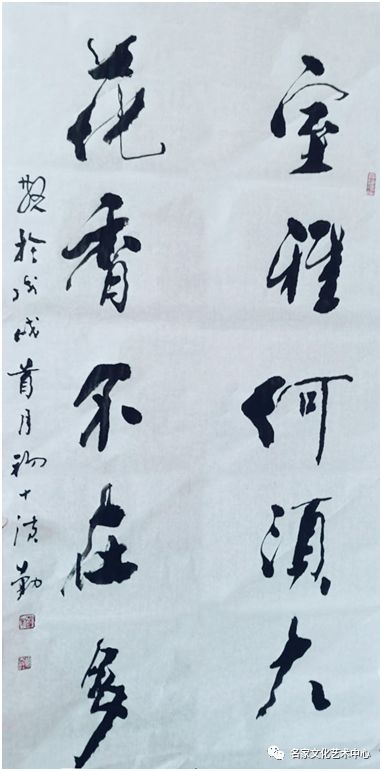 室雅何須大
花香不在多
於戊戌首月初十濱勤
名家文化艺术中心